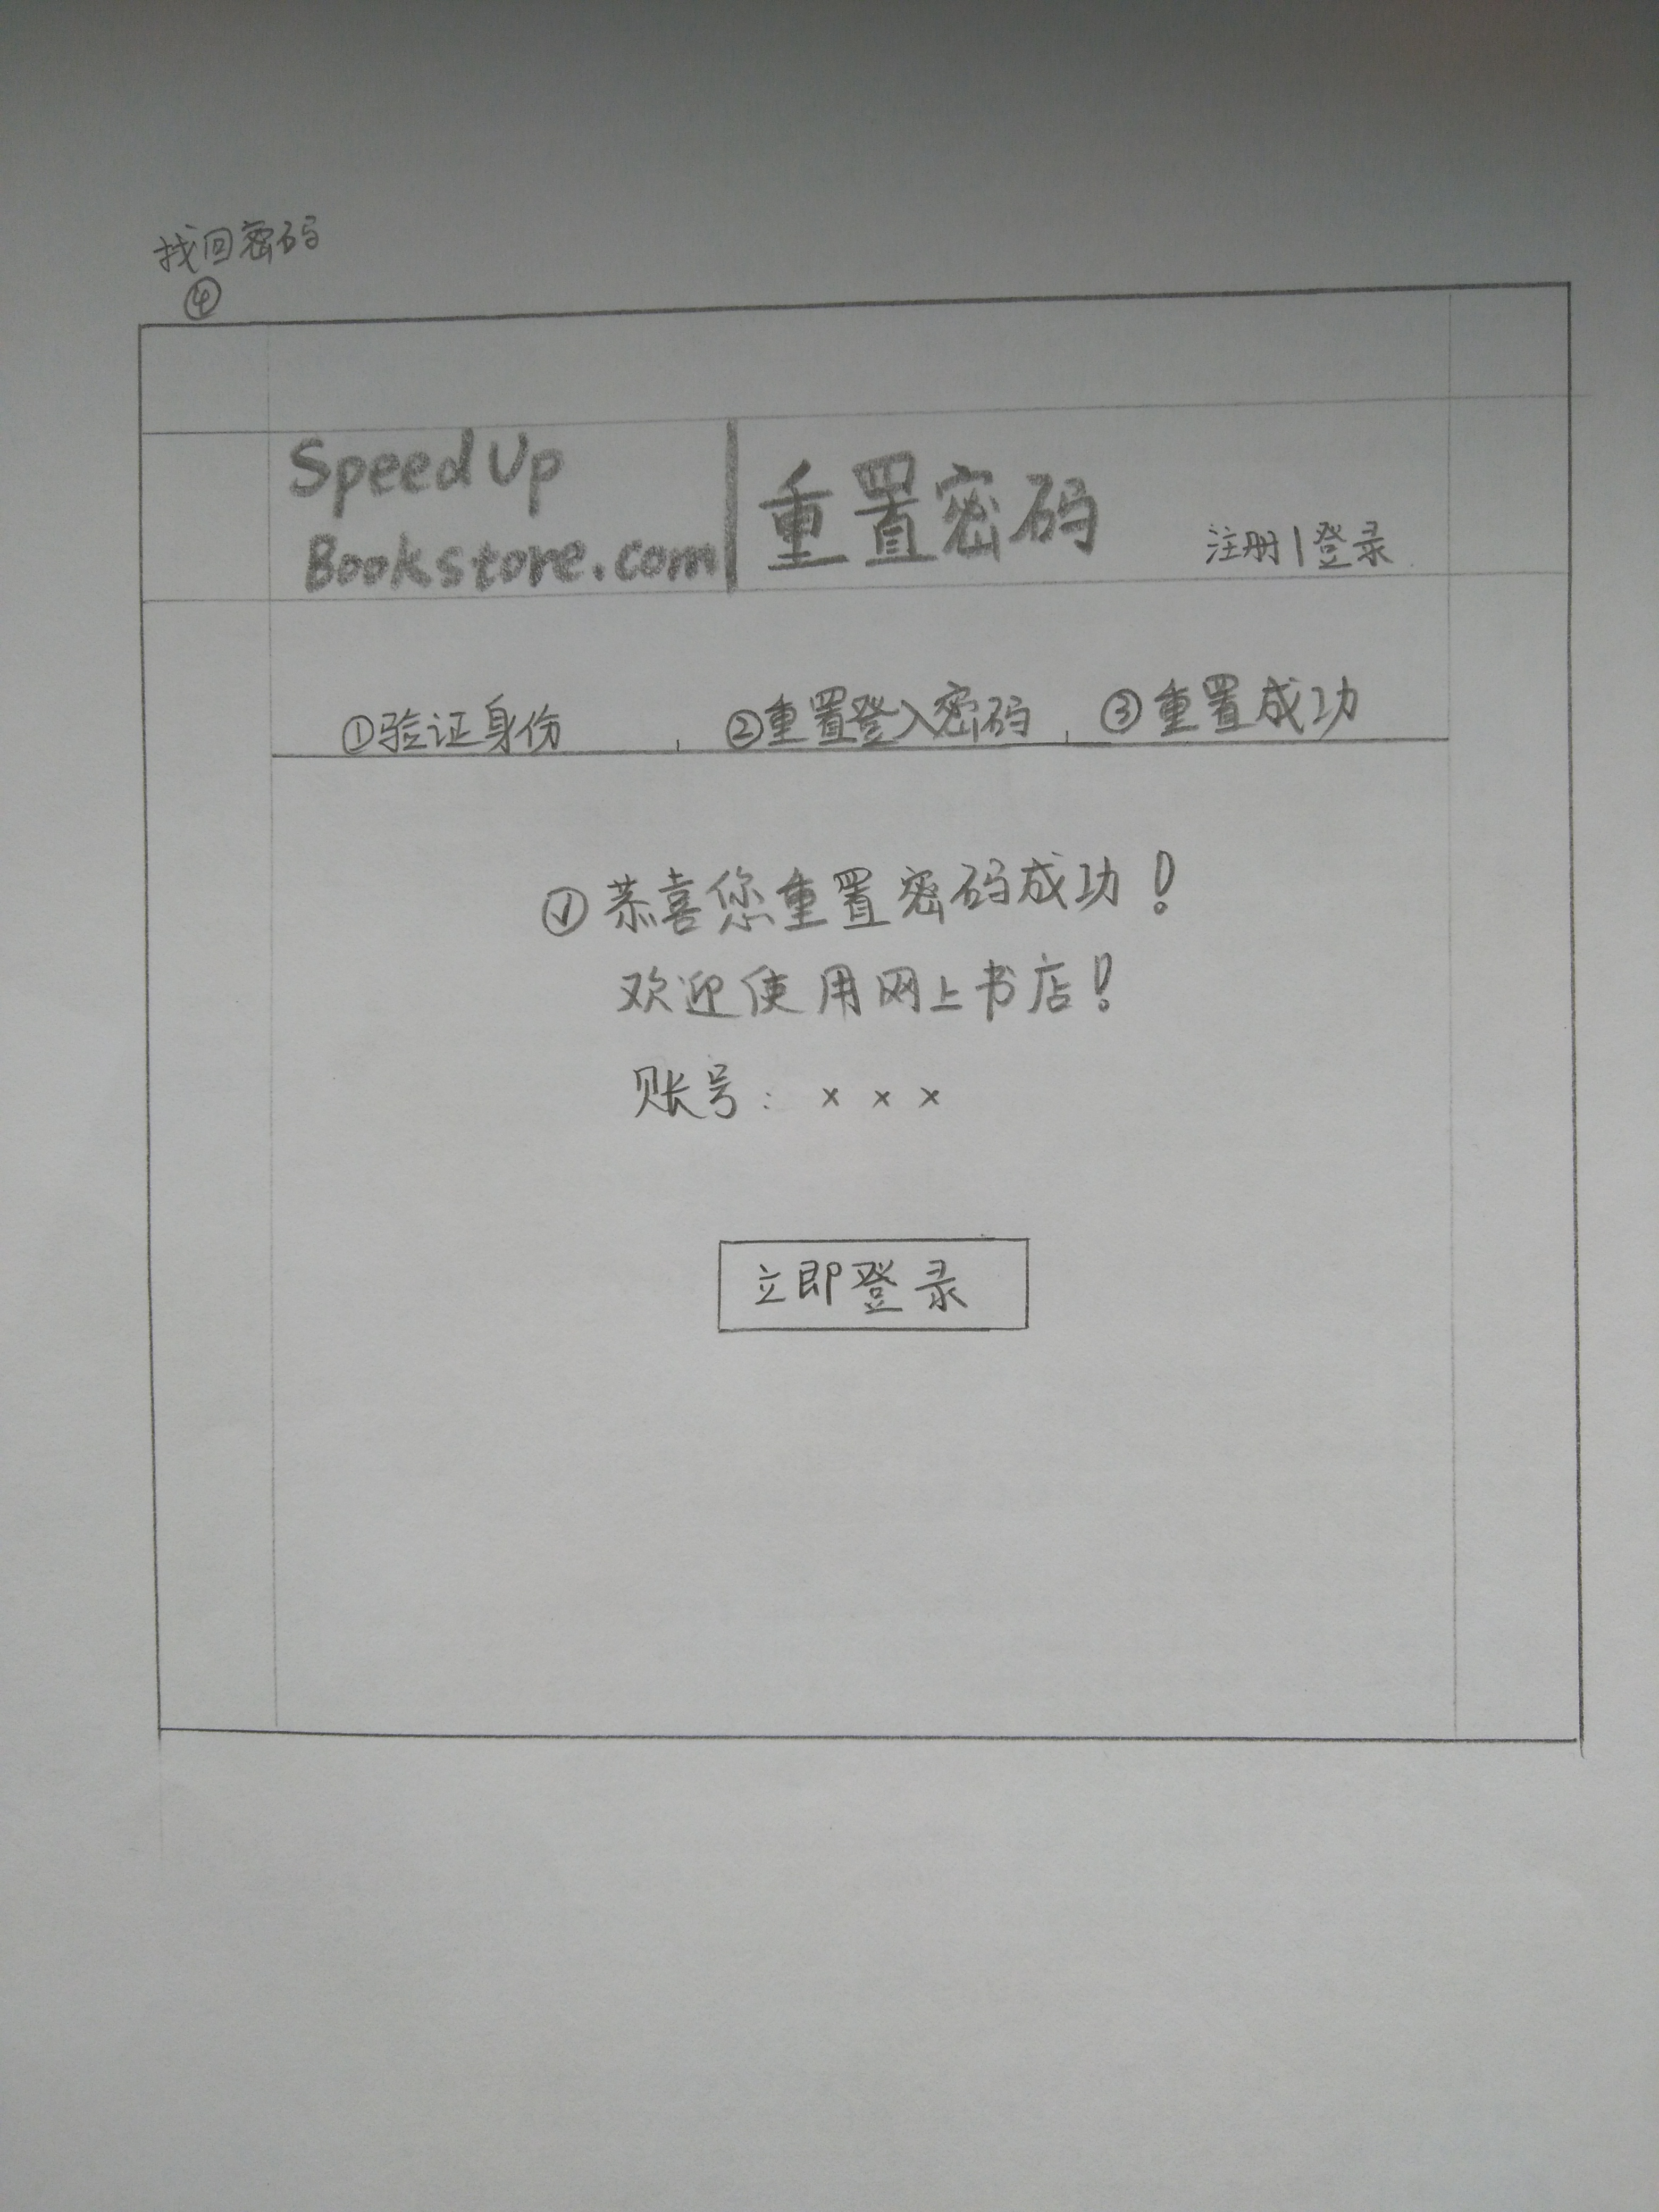 找回密码
④
Speed Up
Bookstore.com
重置密码
注册|登录
①验证身份 ②重置登入密码 ③重置成功
恭喜您重置密码成功!
欢迎使用网上书店!
账号: × × ×
立即登录